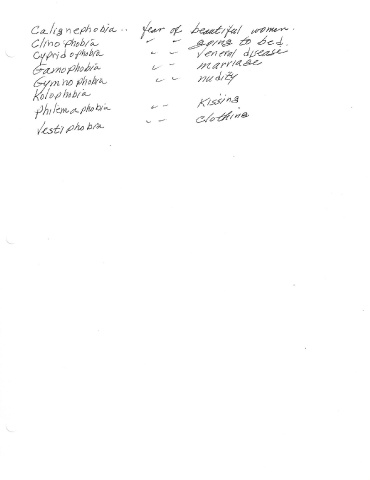 Calignephobia .. fear of beautiful women.
Clinophobia " " going to bed.
Cypridophobia " " veneral disease
Gamophobia " " marriage
Gymnophobia " " nudity
Kolophobia
Philemaphobia " " Kissing
Vestiphobia " " Clothing